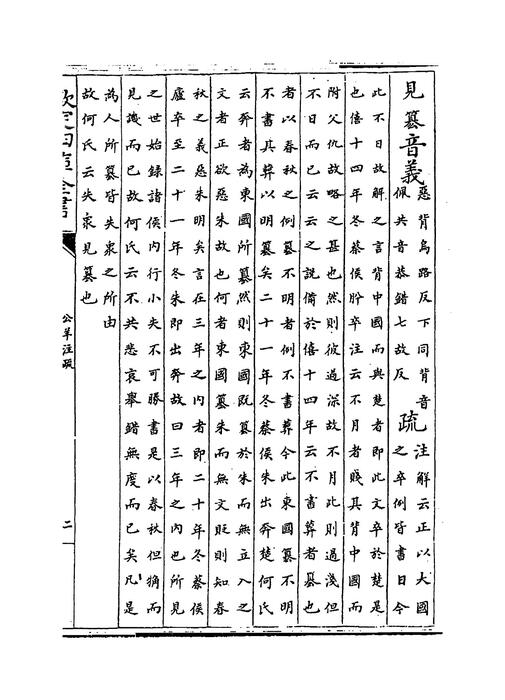 見篡音義
惡背烏路反下同背音
佩共音恭錯七故反
疏
注解云正以大國
之卒例皆書日今
此不日故解之言背中國而與楚者即此文卒於楚是
也僖十四年冬蔡侯肹卒注云不月者賤其背中國而
附父仇故略之甚也然則彼過深故不月此則過淺但
不日而已云云之說備於僖十四年云不書葬者篡也
者以春秋之例篡不明者例不書葬今此東國篡不明
不書其葬以明篡矣二十一年冬蔡侯朱出奔楚何氏
云奔者為東國所篡然則東國既篡於朱而無立入之
文者正欲惡朱故也何者東國篡朱而無文貶則知春
秋之義惡朱明矣言在三年之內者即二十年冬蔡侯
廬卒至二十一年冬朱即出奔故曰三年之內也所見
之世始録諸侯内行小失不可勝書是以春秋但猶而
見譏而已故何氏云不共悲哀舉錯無度而已矣凡是
為人所篡皆失衆之所由
故何氏云失衆見篡也
欽定四庫全書
公羊注疏
二